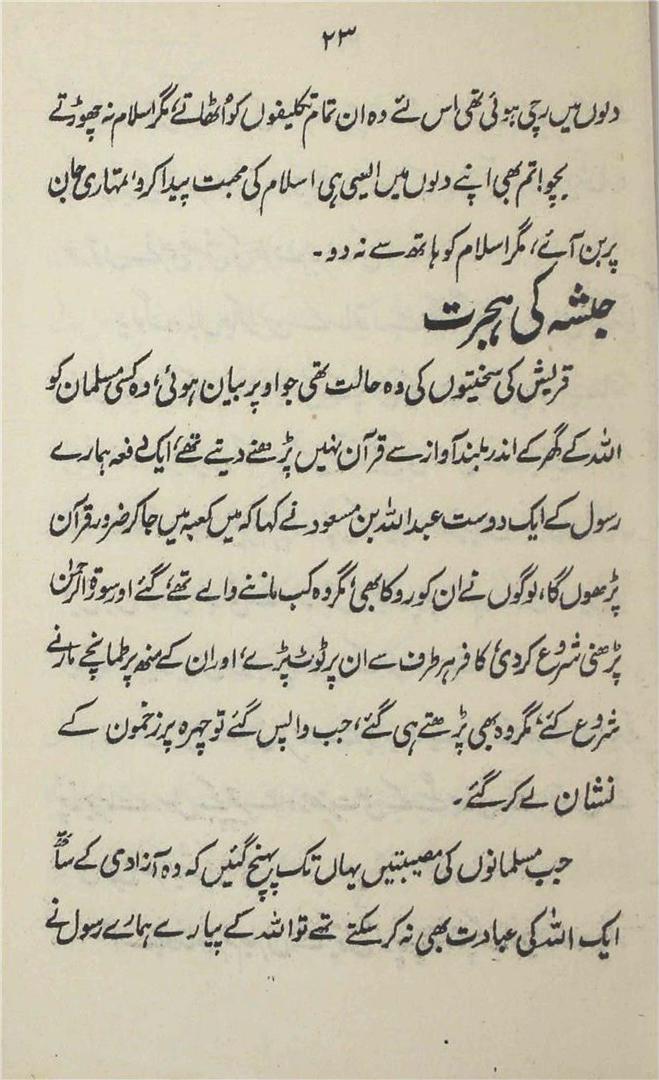 ۲۳
دلوں میں رچی ہوئی تھی اس لئے وہ ان تمام تکلیفوں کو اُٹھاتے، مگر اسلام نہ چھوڑتے
بچو! تم بھی اپنے دلوں میں ایسی ہی اسلام کی محبت پیدا کرو، تمہاری جان
پر بن آئے، مگر اسلام کو ہاتھ سے نہ دو۔
حبشہ کی ہجرت
قریش کی سختیوں کی وہ حالت تھی جو اوپر بیان ہوئی، وہ کسی مسلمان کو
اللہ کے گھر کے اندر بلند آواز سے قرآن نہیں پڑھنے دیتے تھے، ایک دفعہ ہمارے
رسول کے ایک دوست عبداللہ بن مسعود نے کہا کہ میں کعبہ میں جا کر ضرور قرآن
پڑھوں گا، لوگوں نے ان کو روکا بھی، مگر وہ کب ماننے والے تھے، گئے اور سورۃ الرحمٰن
پڑھنی شروع کر دی، کافر ہر طرف سے ان پر ٹوٹ پڑے، اور ان کے منھ پر طمانچے مارنے
شروع کئے، مگر وہ بھی پڑھتے ہی گئے، جب واپس گئے تو چہرہ پر زخموں کے
نشان لے کر گئے۔
جب مسلمانوں کی مصیبتیں یہاں تک پہنچ گئیں کہ وہ آزادی کے ساتھ
ایک اللہ کی عبادت بھی نہ کر سکتے تھے تو اللہ کے پیارے ہمارے رسول نے